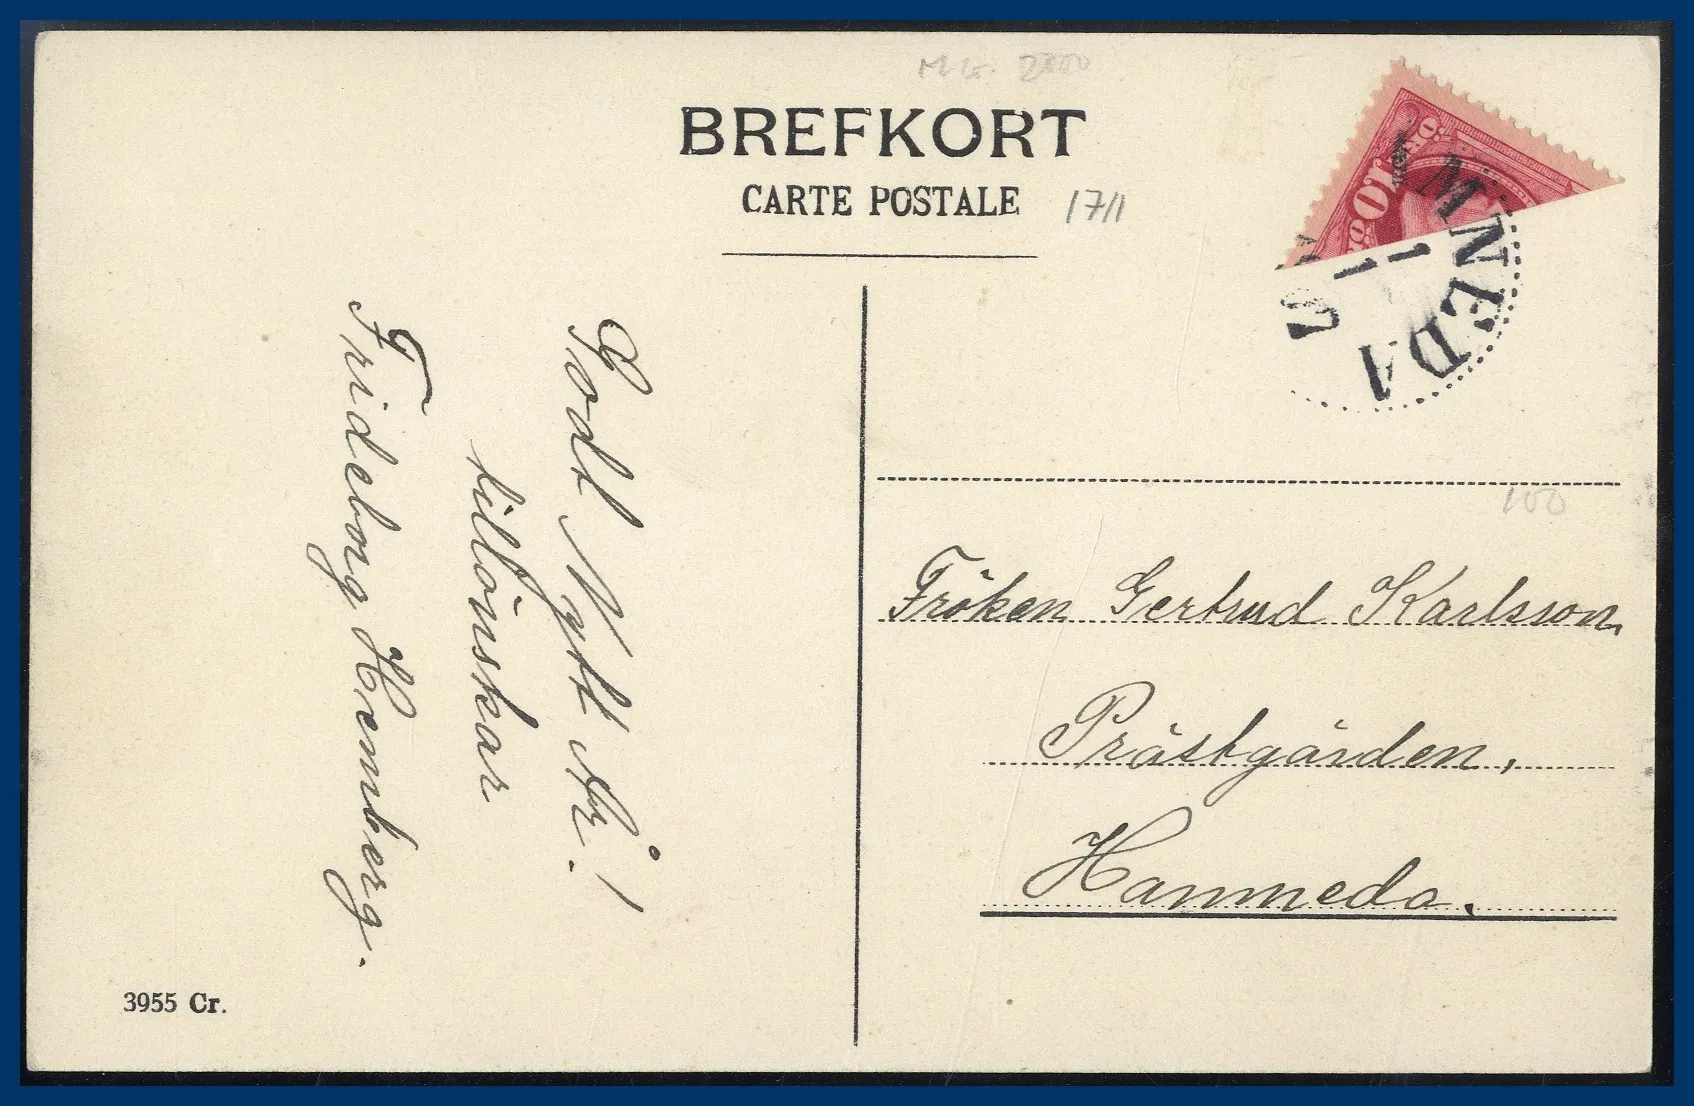 BREFKORT
CARTE POSTALE
17/1
10
Godt Nytt År!
tillönskar
Frideborg Hemberg.
100
Fröken Gertrud Karlsson,
Prästgården,
Hanmeda.
3955 Cr.